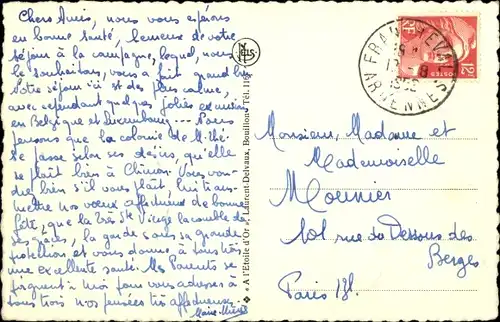 Chers Amis, nous vous espérons
en bonne santé, heureux de votre
séjour à la campagne, lequel, nous
le souhaitons, vous a fait grand bien
Votre séjour ici est des plus calme,
avec cependant quelques jolies excursions
en Belgique et Luxembourg --- Nous
pensons que la colonie de
se passe selon ses désirs, qu'elle
se plaît bien à Vous
bien s'il vous plaît, lui trans-
mettre nos vœux affectueux de bonne
fête, que la Très Ste Vierge la comble de
ses grâces, la garde sous sa grande
protection et vous donne à tous trois
une excellente santé. Mes Parents se
joignent à moi pour vous adresser à
tous trois nos pensées très affectueuses.
Marie-
NELS
« A l'Etoile d'Or » Laurent-Delvaux, Bouillon. Tél.
ARDENNES
RF
12F
POSTES
Monsieur, Madame et
Mademoiselle
Mounier
101 rue du Dessous des
Berges
Paris 13e.